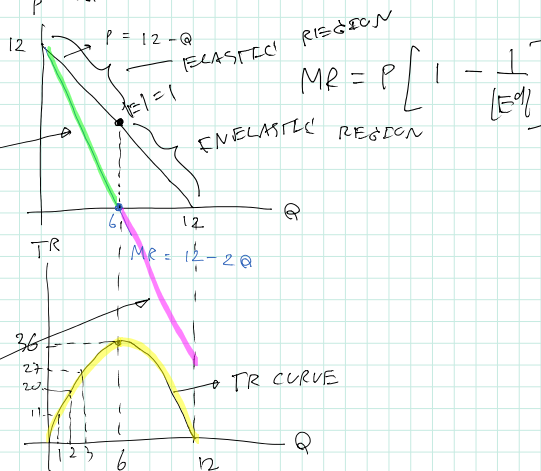 P
12
P = 12 - Q
ELASTIC REGION
MR = P[1 - 1/|Ed|]
|E| = 1
ENELASTIC REGION
6
12
Q
TR
MR = 12 - 2Q
36
27
20
11
TR CURVE
1 2 3
6
12
Q